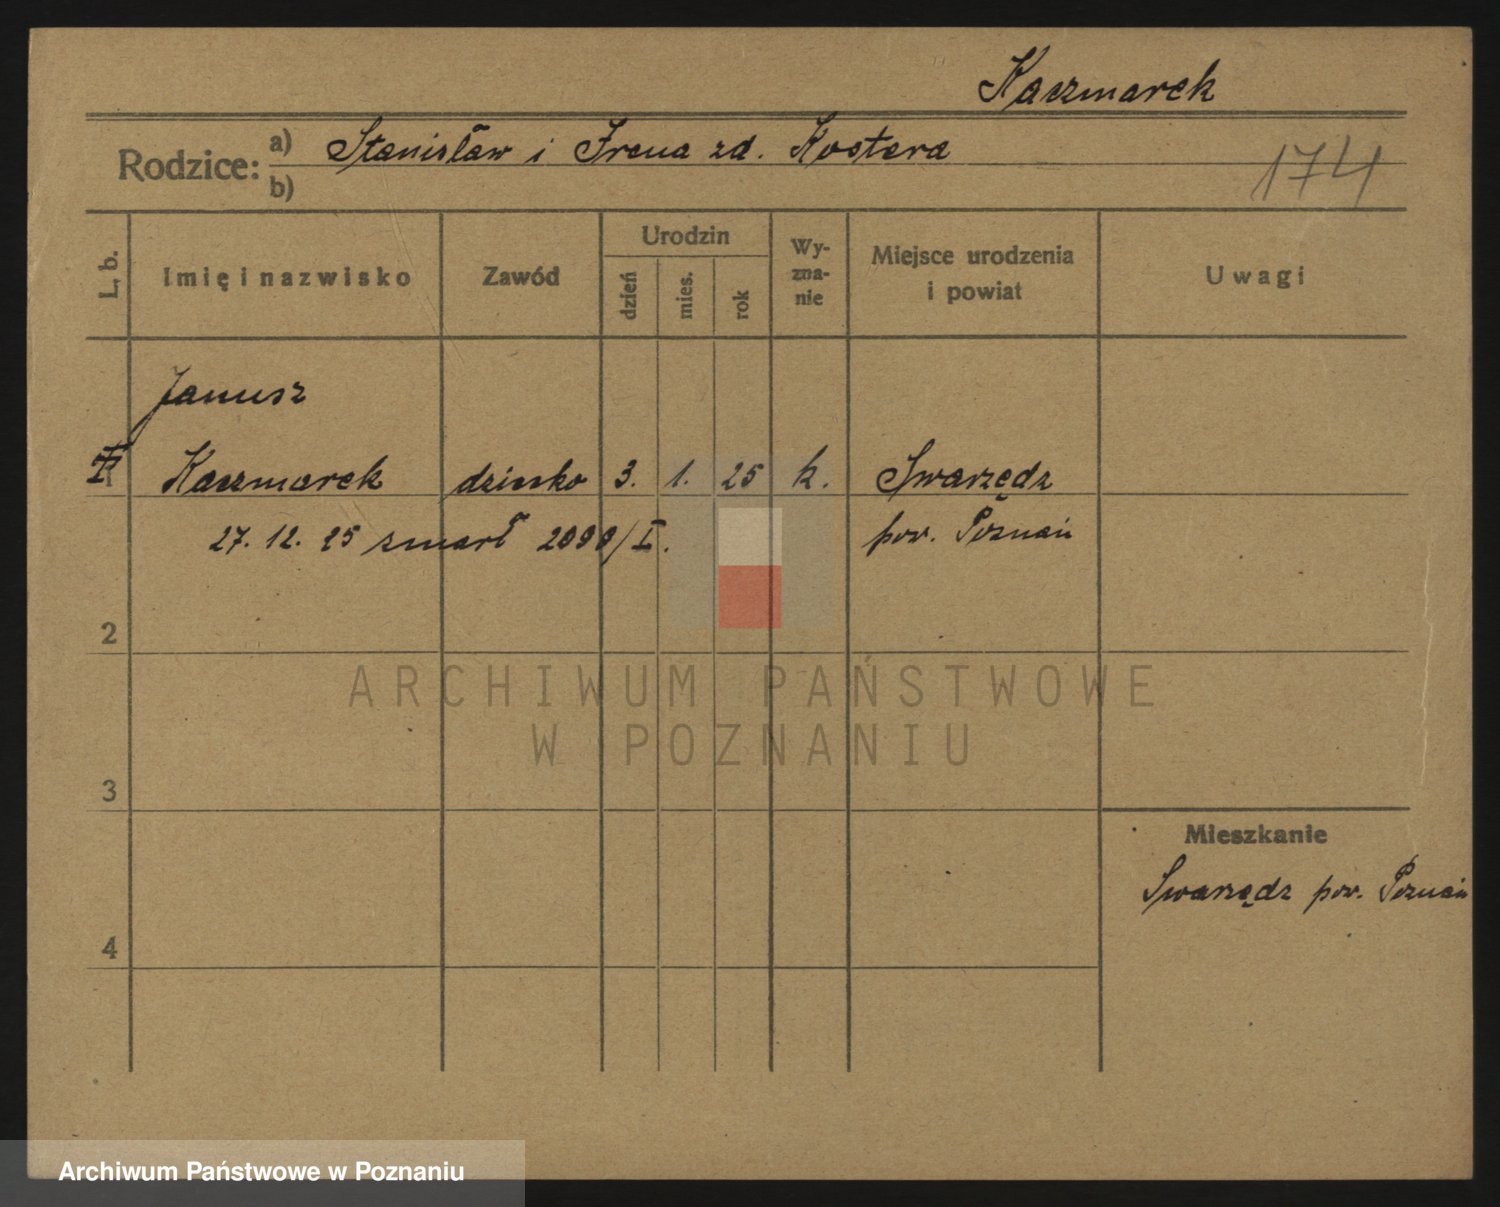 Kaczmarek
Rodzice: a) Stanisław i Irena zd. Kostera
b)
174
L. b.
Imię i nazwisko
Zawód
Urodzin
dzień
mies.
rok
Wy-
zna-
nie
Miejsce urodzenia
i powiat
Uwagi
Janusz
Kaczmarek dziecko 3. 1. 25 k. Swarzędz
27. 12. 25 zmarł 2090/I. pow. Poznań
2
ARCHIWUM PAŃSTWOWE
W POZNANIU
3
Mieszkanie
Swarzędz pow. Poznań
4
Archiwum Państwowe w Poznaniu